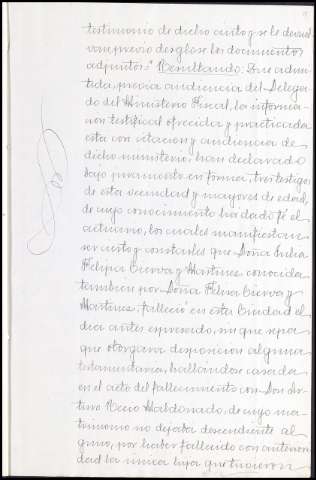 testimonio de dicho auto y se le devuel
van previo desglose los documentos
adjuntos." Resultando: Que admi
tida, previa audiencia del Delega
do del Ministerio Fiscal, la informa
cion testifical ofrecida y practicada
esta con citacion y audiencia de
dicho ministerio, han declarado
bajo juramento en forma, tres testigos
de esta vecindad y mayores de edad
de cuyo conocimiento ha dado fé el
actuario, los cuales manifiestan
ser cierto y constarles que Doña
Felipa Cuerva y Martinez conocida
tambien por Doña Felisa Cuerva y
Martinez, falleció en esta Ciudad el
dia antes expresado, sin que sepan
que otorgara disposicion alguna
testamentaria, hallándose casada
en el acto del fallecimiento con Don
Maldonado, de cuyo ma
trimonio no dejaba descendiente al
guno, por haber fallecido con anteriori
dad la única hija que tuvieron